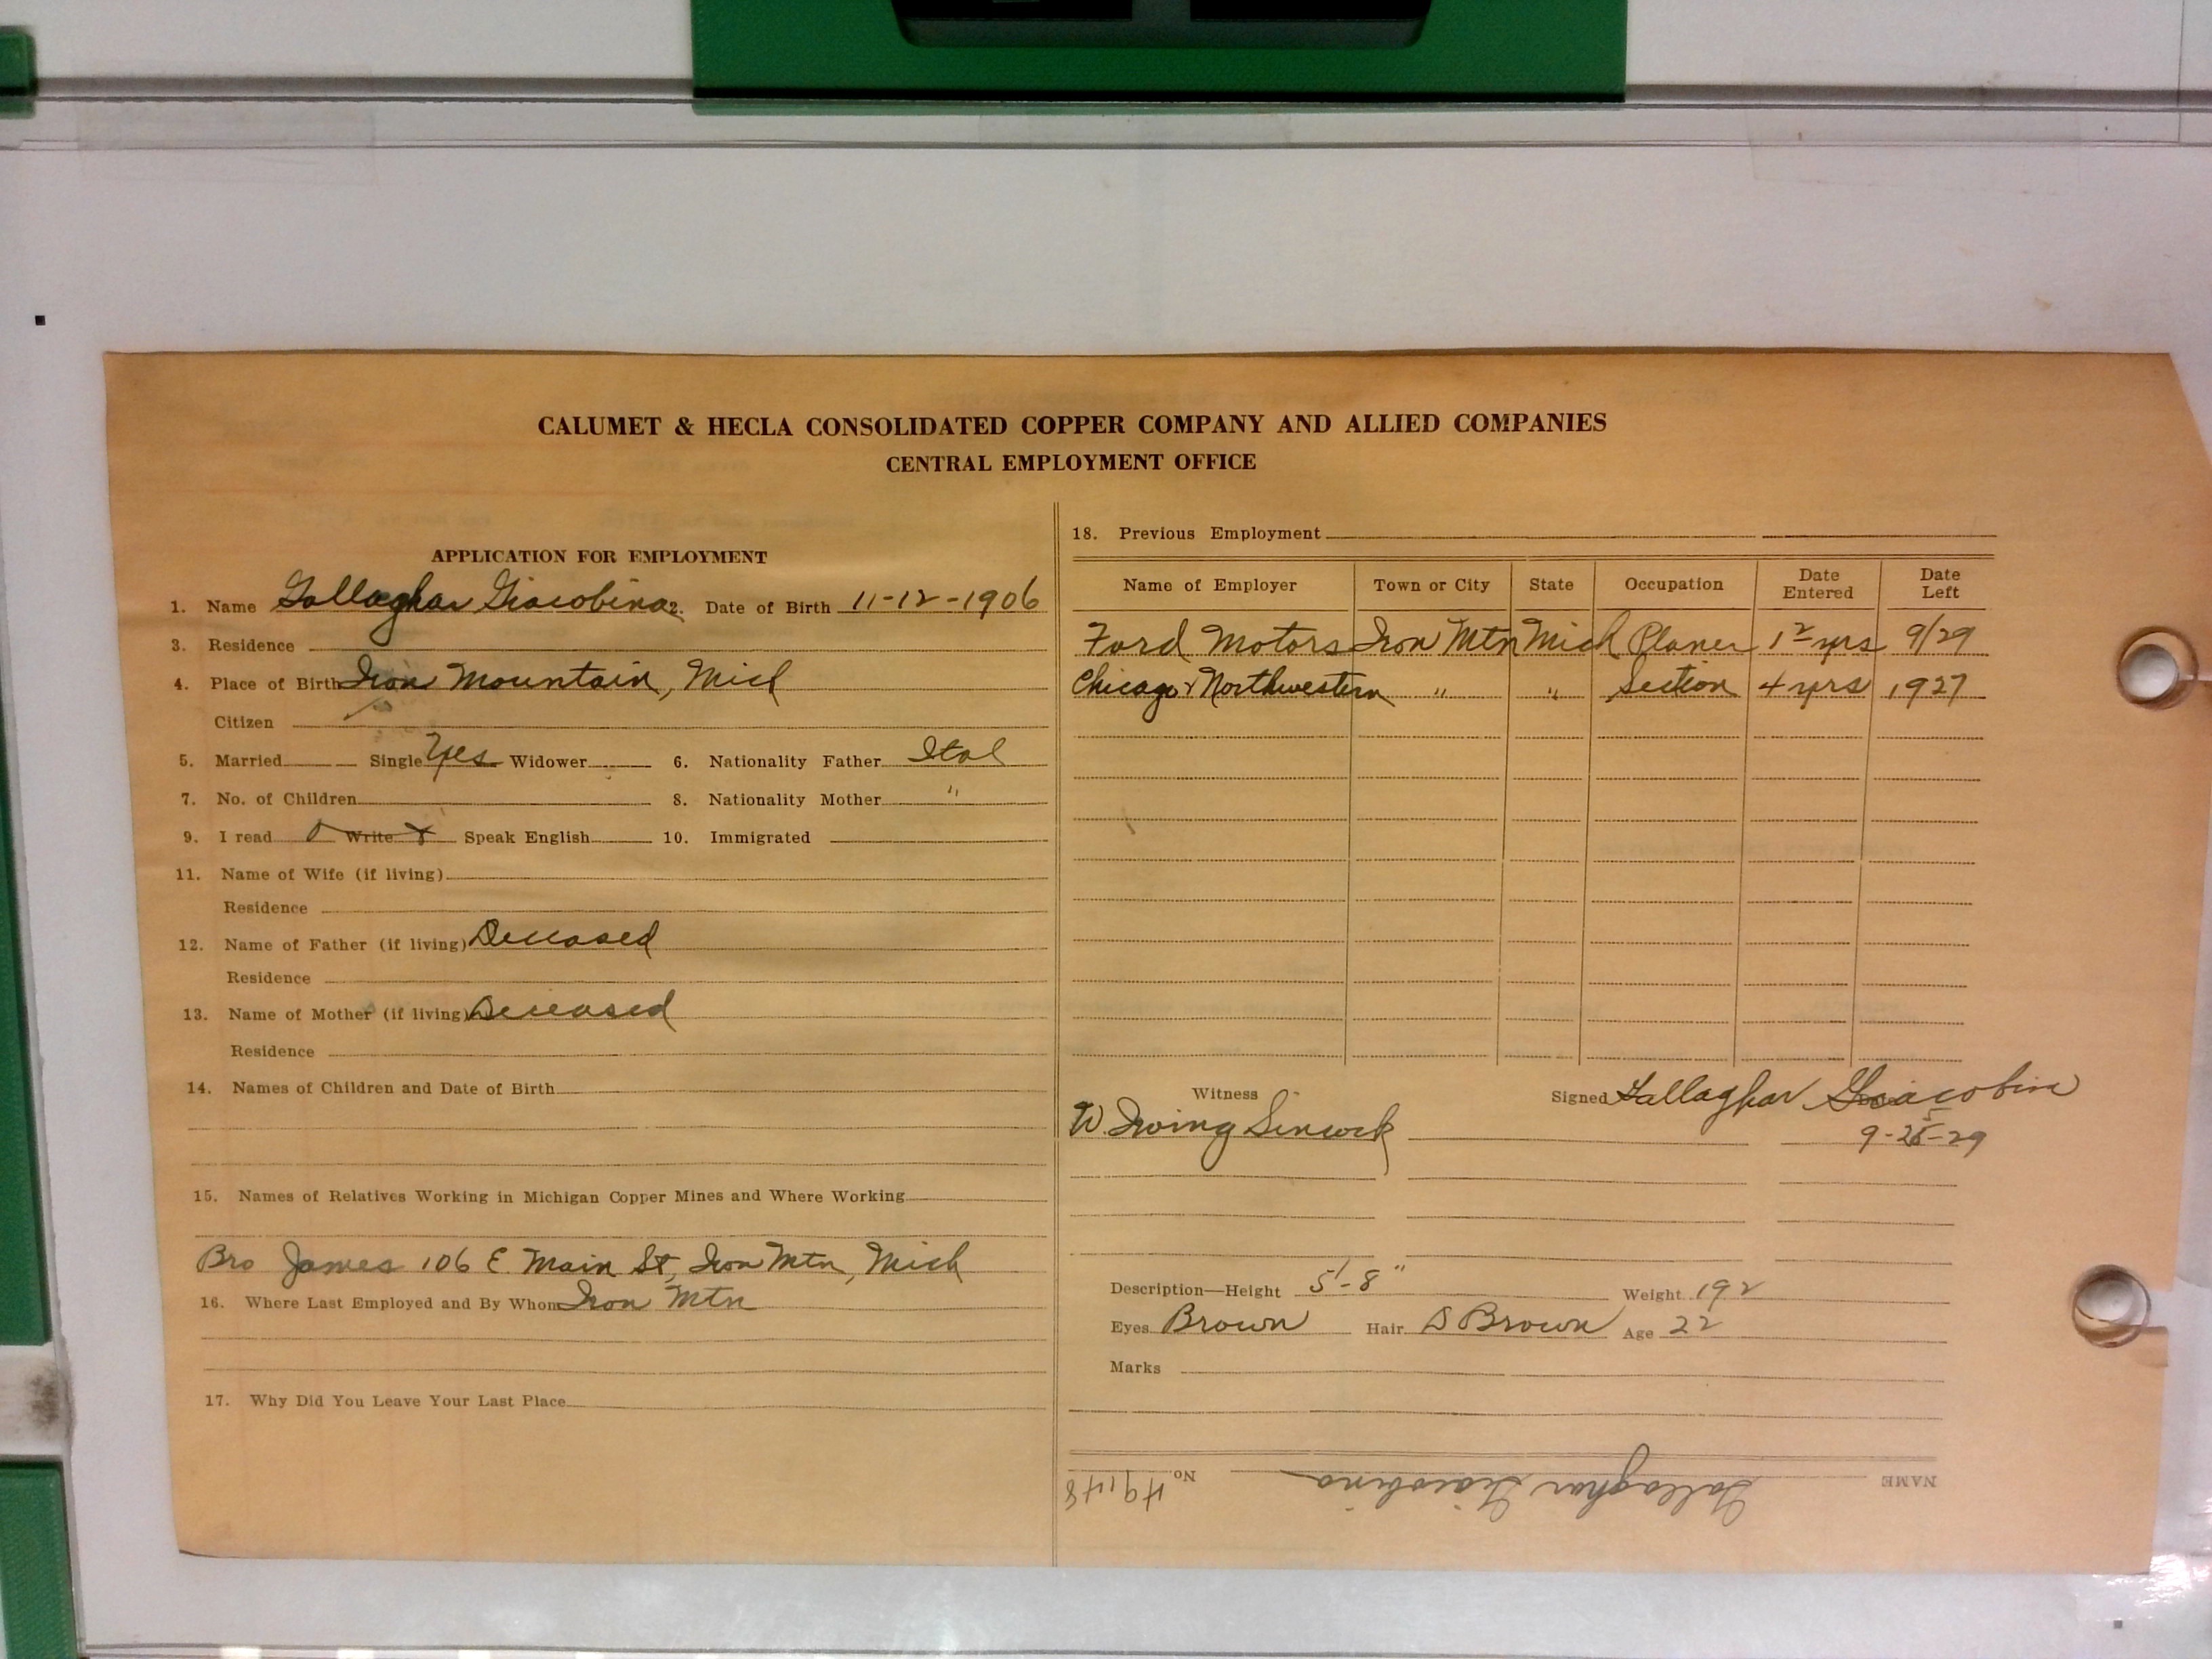 CALUMET & HECLA CONSOLIDATED COPPER COMPANY AND ALLIED COMPANIES
CENTRAL EMPLOYMENT OFFICE
APPLICATION FOR EMPLOYMENT
1. Name Gallaghar Giacobina 2. Date of Birth 11-12-1906
3. Residence
4. Place of Birth Iron Mountain, Mich
Citizen
5. Married Single Yes Widower 6. Nationality Father Ital
7. No. of Children 8. Nationality Mother "
9. I read Write Speak English 10. Immigrated
11. Name of Wife (if living)
Residence
12. Name of Father (if living) Deceased
Residence
13. Name of Mother (if living) Deceased
Residence
14. Names of Children and Date of Birth
15. Names of Relatives Working in Michigan Copper Mines and Where Working
Bro James 106 E. Main St, Iron Mtn, Mich
16. Where Last Employed and By Whom Iron Mtn
17. Why Did You Leave Your Last Place
18. Previous Employment
Name of Employer Town or City State Occupation Date Entered Date Left
Ford Motors Iron Mtn Mich Planer yrs 9/29
Chicago & Northwestern " " Section 4 yrs 1927
Witness Signed Gallaghar Giacobina
W. Irving 9-25-29
Description—Height 5'-8" Weight 192
Eyes Brown Hair D Brown Age 22
Marks
NAME Gallaghar Giacobina No. 49148